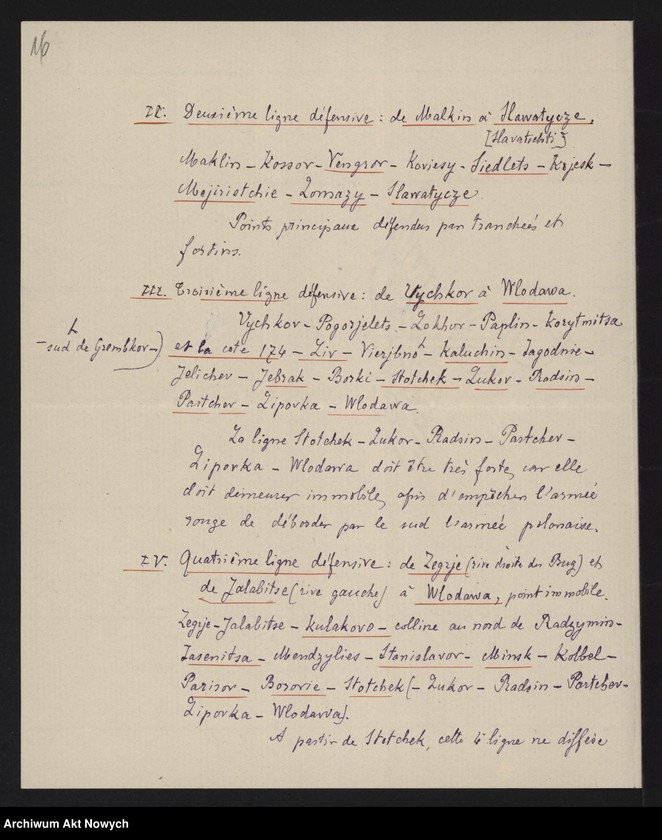 16
II. Deuxième ligne défensive : de Malkin à Slawatycze.
[Slavatichti]
Maklin - Kossov - Vengrov - Koviesy - Siedlets - Krjesk -
Mejirietchie - Lomazy - Slawatycze.
Points principaux défendus par tranchées et
fortins.
III. Troisième ligne défensive : de Vychkor à Wlodawa.
Vychkor - Pogorjelets - Lokhov - Paplin - Korytnitsa
- sud de Grembkov -)
et la cote 174 - Liv - Vierjbno - Kaluchin - Jagodnie -
Jelichev - Jebrak - Borki - Stotchek - Lukov - Radsin -
Partchev - Lipovka - Wlodawa.
La ligne Stotchek - Lukov - Radsin - Partchev -
Lipovka - Wlodawa doit être très forte, car elle
doit demeurer immobile, afin d'empêcher l'armée
rouge de déborder par le sud l'armée polonaise.
IV. Quatrième ligne défensive : de Zegrje (rive droite du Bug) et
de Jalabitse (rive gauche) à Wlodawa, point immobile.
Zegrje - Jalabitse - Kulakovo - colline au nord de Radzymin -
Jasenitsa - Mendzylies - Stanislavov - Minsk - Kolbel -
Parisov - Borovie - Stotchek (- Lukov - Radsin - Partchev -
Lipovka - Wlodawa).
A partir de Stotchek, cette 4e ligne ne diffère
Archiwum Akt Nowych